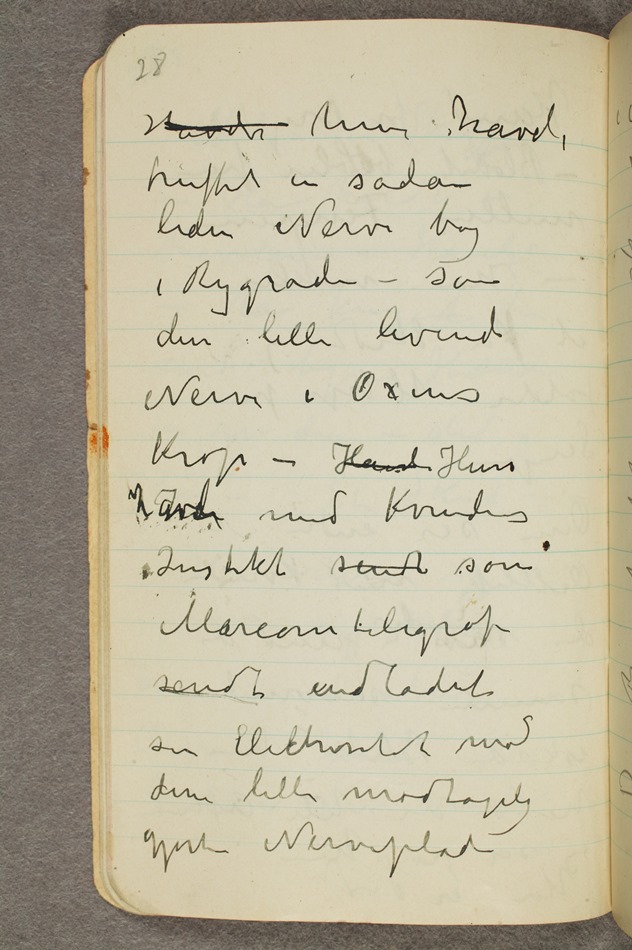 28
Havde hun havde
truffet en sådan
liden Nerve bag
i Rygraden – som
den lille levende
Nerve i Oxens
Krop – Havde Hun
havde med Kvindens
Instikt sendt som
Marconi telegraf
sendt endladet
sin Elektrisitet mod
denne lille modtagelig
gjorte Nerveplade